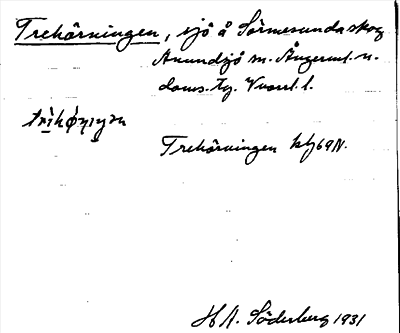 Trehörningen, sjö å Sörmesundaskog
Anundsjö sn. Ångerml. n.
doms. tg. Vnorrl. l.
Trehörningen kbl69N.
H A. Söderberg 1931